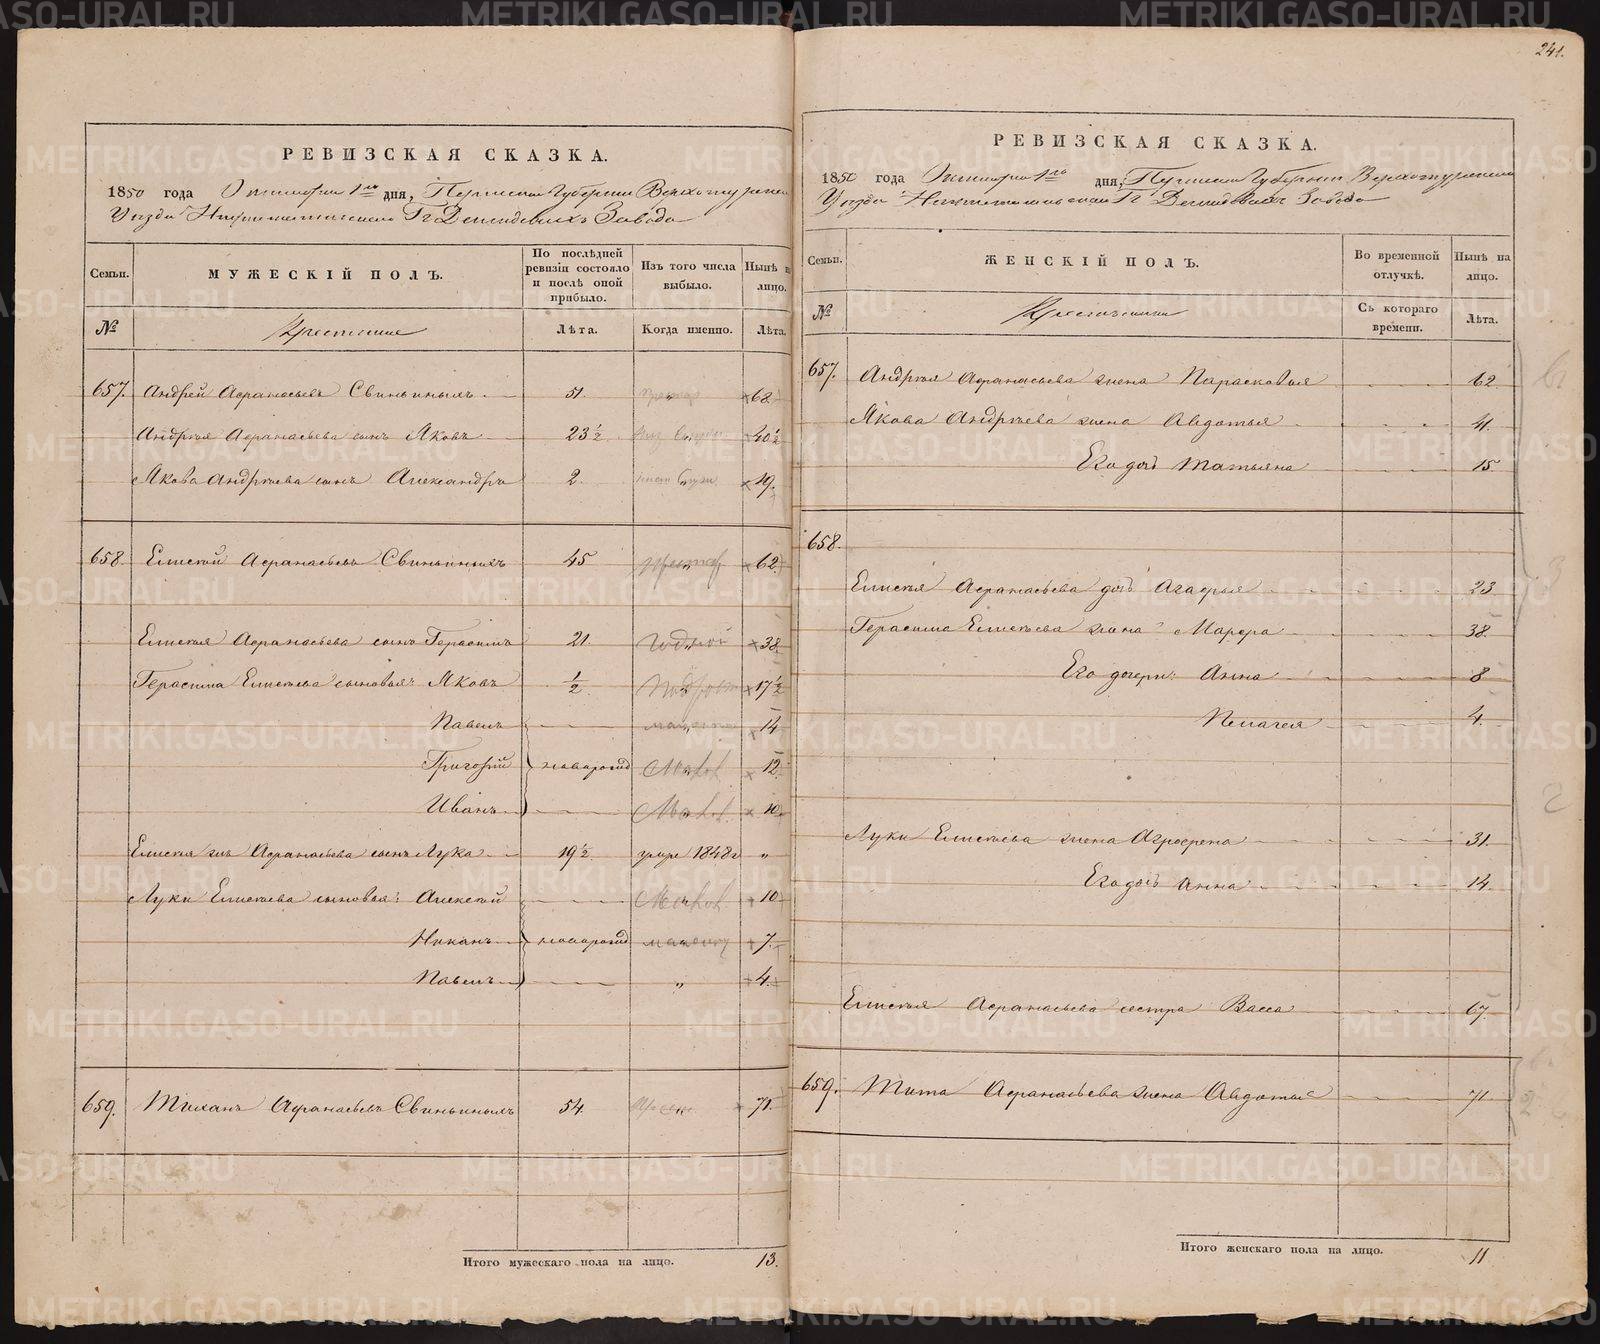 241.
РЕВИЗСКАЯ СКАЗКА.
1850 года Октября 1го дня, Пермской Губернии Верхотурскаго
Уезда Нижнетагильскаго Гг Демидовыхъ Завода
Семьи.
МУЖЕСКІЙ ПОЛЪ.
По послѣдней ревизіи состояло и послѣ оной прибыло.
Изъ того числа выбыло.
Нынѣ на лицо.
№
Крестьяне
Лѣта.
Когда именно.
Лѣта.
657. Андрей Афанасьевъ Свиньиныхъ 51. 68
Андрея Афанасьева сынъ Яковъ 23½ 40½
Якова Андрѣева сынъ Александръ 2. 19.
658. Елисей Афанасьевъ Свиньиныхъ 45 62
Елисея Афанасьева сынъ Герасимъ 21. годной 38.
Герасима Елисѣева сыновья: Яковъ ½ 17½
Павелъ 14
Григорій новорожд 12
Иванъ 10.
Елисея Афанасьева сынъ Лука 19½ умре 1848г „
Луки Елисѣева сыновья: Алексѣй 10
Никанъ новорожд 7.
Павелъ „ 4.
659. Афанасьевъ Свиньиныхъ 54. 71.
Итого мужескаго пола на лицо. 13.
РЕВИЗСКАЯ СКАЗКА.
1850 года Октября 1го дня, Пермской Губернии Верхотурскаго
Уезда Нижнетагильскаго Гг Демидовыхъ Завода
Семьи.
ЖЕНСКІЙ ПОЛЪ.
Во временной отлучкѣ.
Нынѣ на лицо.
№
Съ котораго времени.
Лѣта.
657. Андрея Афанасьева жена Парасковья 62.
Якова Андрѣева жена Авдотья 41.
Его дочь Татьяна 15
658.
Елисея Афанасьева дочь Агафья 23
Герасима Елисѣева жена Марфа 38.
Его дочери: Анна 8
Пелагея 4.
Луки Елисѣева жена Агрофена 31.
Его дочь Анна 14.
Елисея Афанасьева сестра Васса 67.
659. Тита Афанасьева жена Авдотья 71
Итого женскаго пола на лицо. 11
METRIKI.GASO-URAL.RU